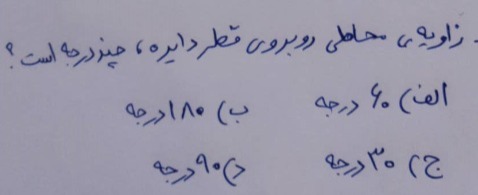 زاویه‌ی محاطی روبروی قطر دایره، چند درجه است؟
الف) ۶۰ درجه ب) ۱۸۰ درجه
ج) ۳۰ درجه د) ۹۰ درجه